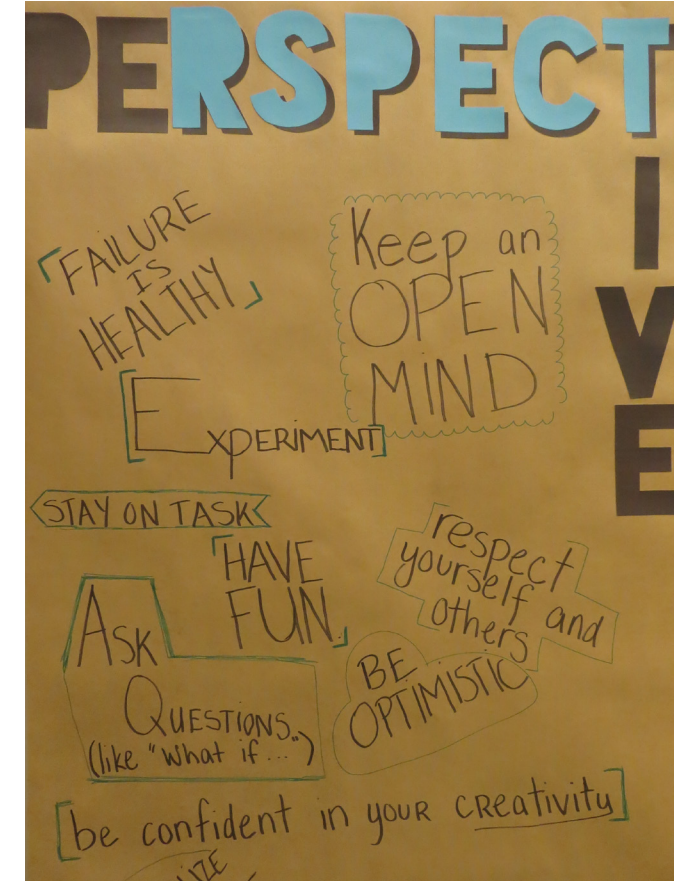 PERSPECTIVE
FAILURE
IS
HEALTHY
Keep an
OPEN
MiND
EXPERiMENT
STAY ON TASK
HAVE
FUN.
respect
yourself and
others
ASK
QUESTIONS
(like "what if...")
BE
OPTIMISTIC
be confident in youR creativity